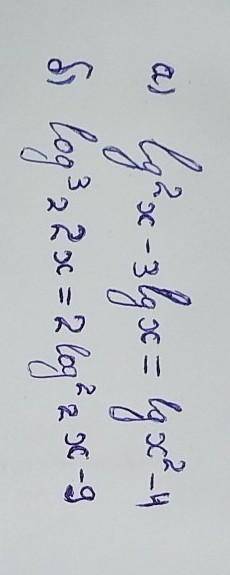 а) lg²x - 3lgx = lgx² - 4
б) log³₂ 2x = 2log²₂ x - 9